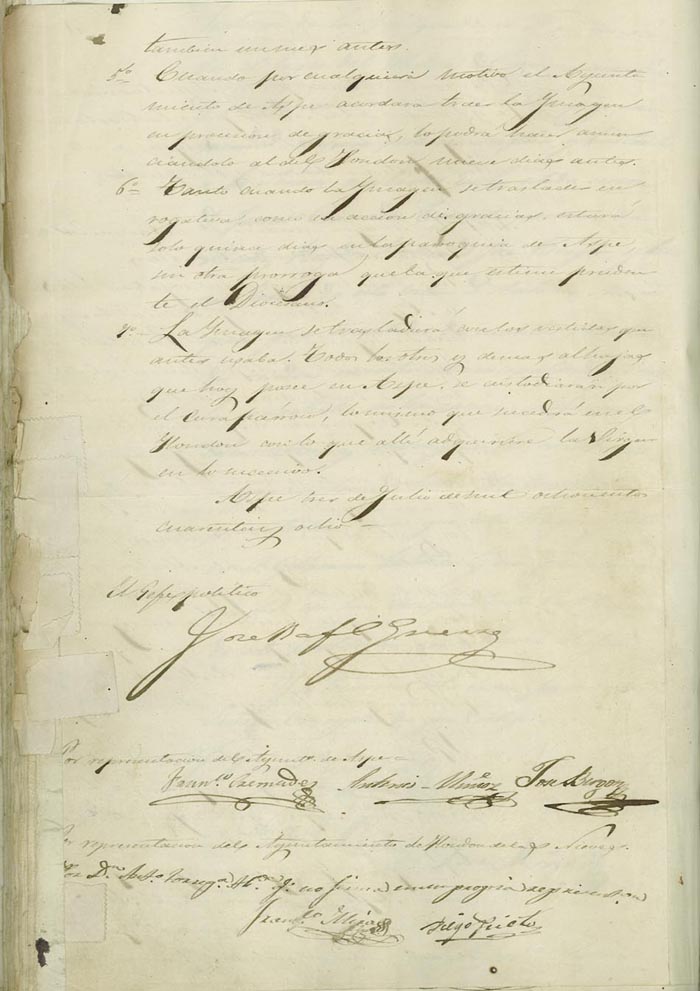 tambien un mes antes.
5ª Cuando por cualquiera motivo el Ayunta
miento de Aspe acordara traer la Ymagen
en procesion de gracias, lo podrá hacer anun
ciandolo al del Hondon nueve dias antes.
6ª Tanto cuando la Ymagen se traslade en
rogativa, como en accion de gracias, estará
solo quince dias en la parroquia de Aspe,
sin otra prorroga que la que estime pruden
te el Diocesano.
7ª La Ymagen se trasladará con los vestidos que
antes usaba. Todos los otros y demas alhajas
que hoy posee en Aspe se custodiarán por
el Cura párroco, lo mismo que sucedrá en el
Hondon con lo que allí adquiriere la Virgen
en lo sucesivo.
Aspe tres de Julio de mil ochocientos
cuarenta y ocho
El Gefe politico
Jose Rafl Guerra
Por representacion del Ayunto de Aspe
Franco Cremades Antonio Muñoz
representacion del Ayuntamiento de Hondon de las Nieves
Por Dn no firma en su propia representon
Franco Mira Diego